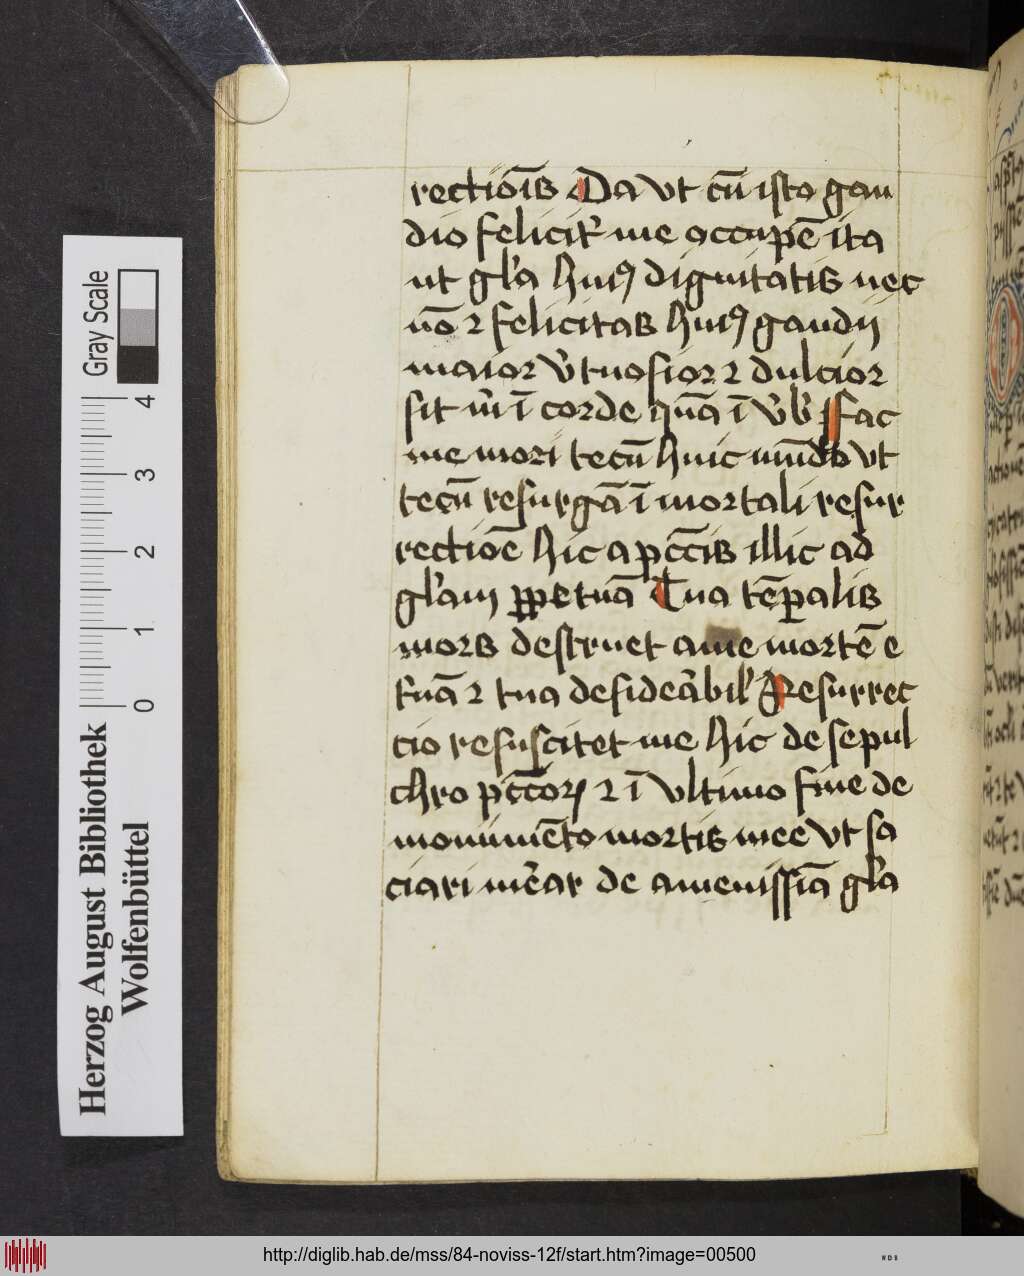 rectiōis Da ut cū isto gau
dio felicit᷑ me occupē ita
ut gl̓a huiꝰ dignitatis nec
nō ⁊ felicitas huiꝰ gaudij
maior v̓tuosior ⁊ dulcior
sit m̓ ī corde quā ī v̓b̓ Fac
me mori tecū huic mūdo ut
tecū resurgā ī mortali resur
rectiōe hic a pcc̄is illic ad
gl̓am ꝑpetuā Tua tēꝑalis
mors destruet a me mortē e
t̓nā ⁊ tua desid̓abil̓ Resurrec
cio resuscitet me hic de sepul
chro pcc̄oꝝ ⁊ ī ultimo fine de
monumēto mortis mee ut sa
ciari m̓ear de amenissīa gl̓a
Gray Scale
4
3
2
1
0
Herzog August Bibliothek
Wolfenbüttel
http://diglib.hab.de/mss/84-noviss-12f/start.htm?image=00500